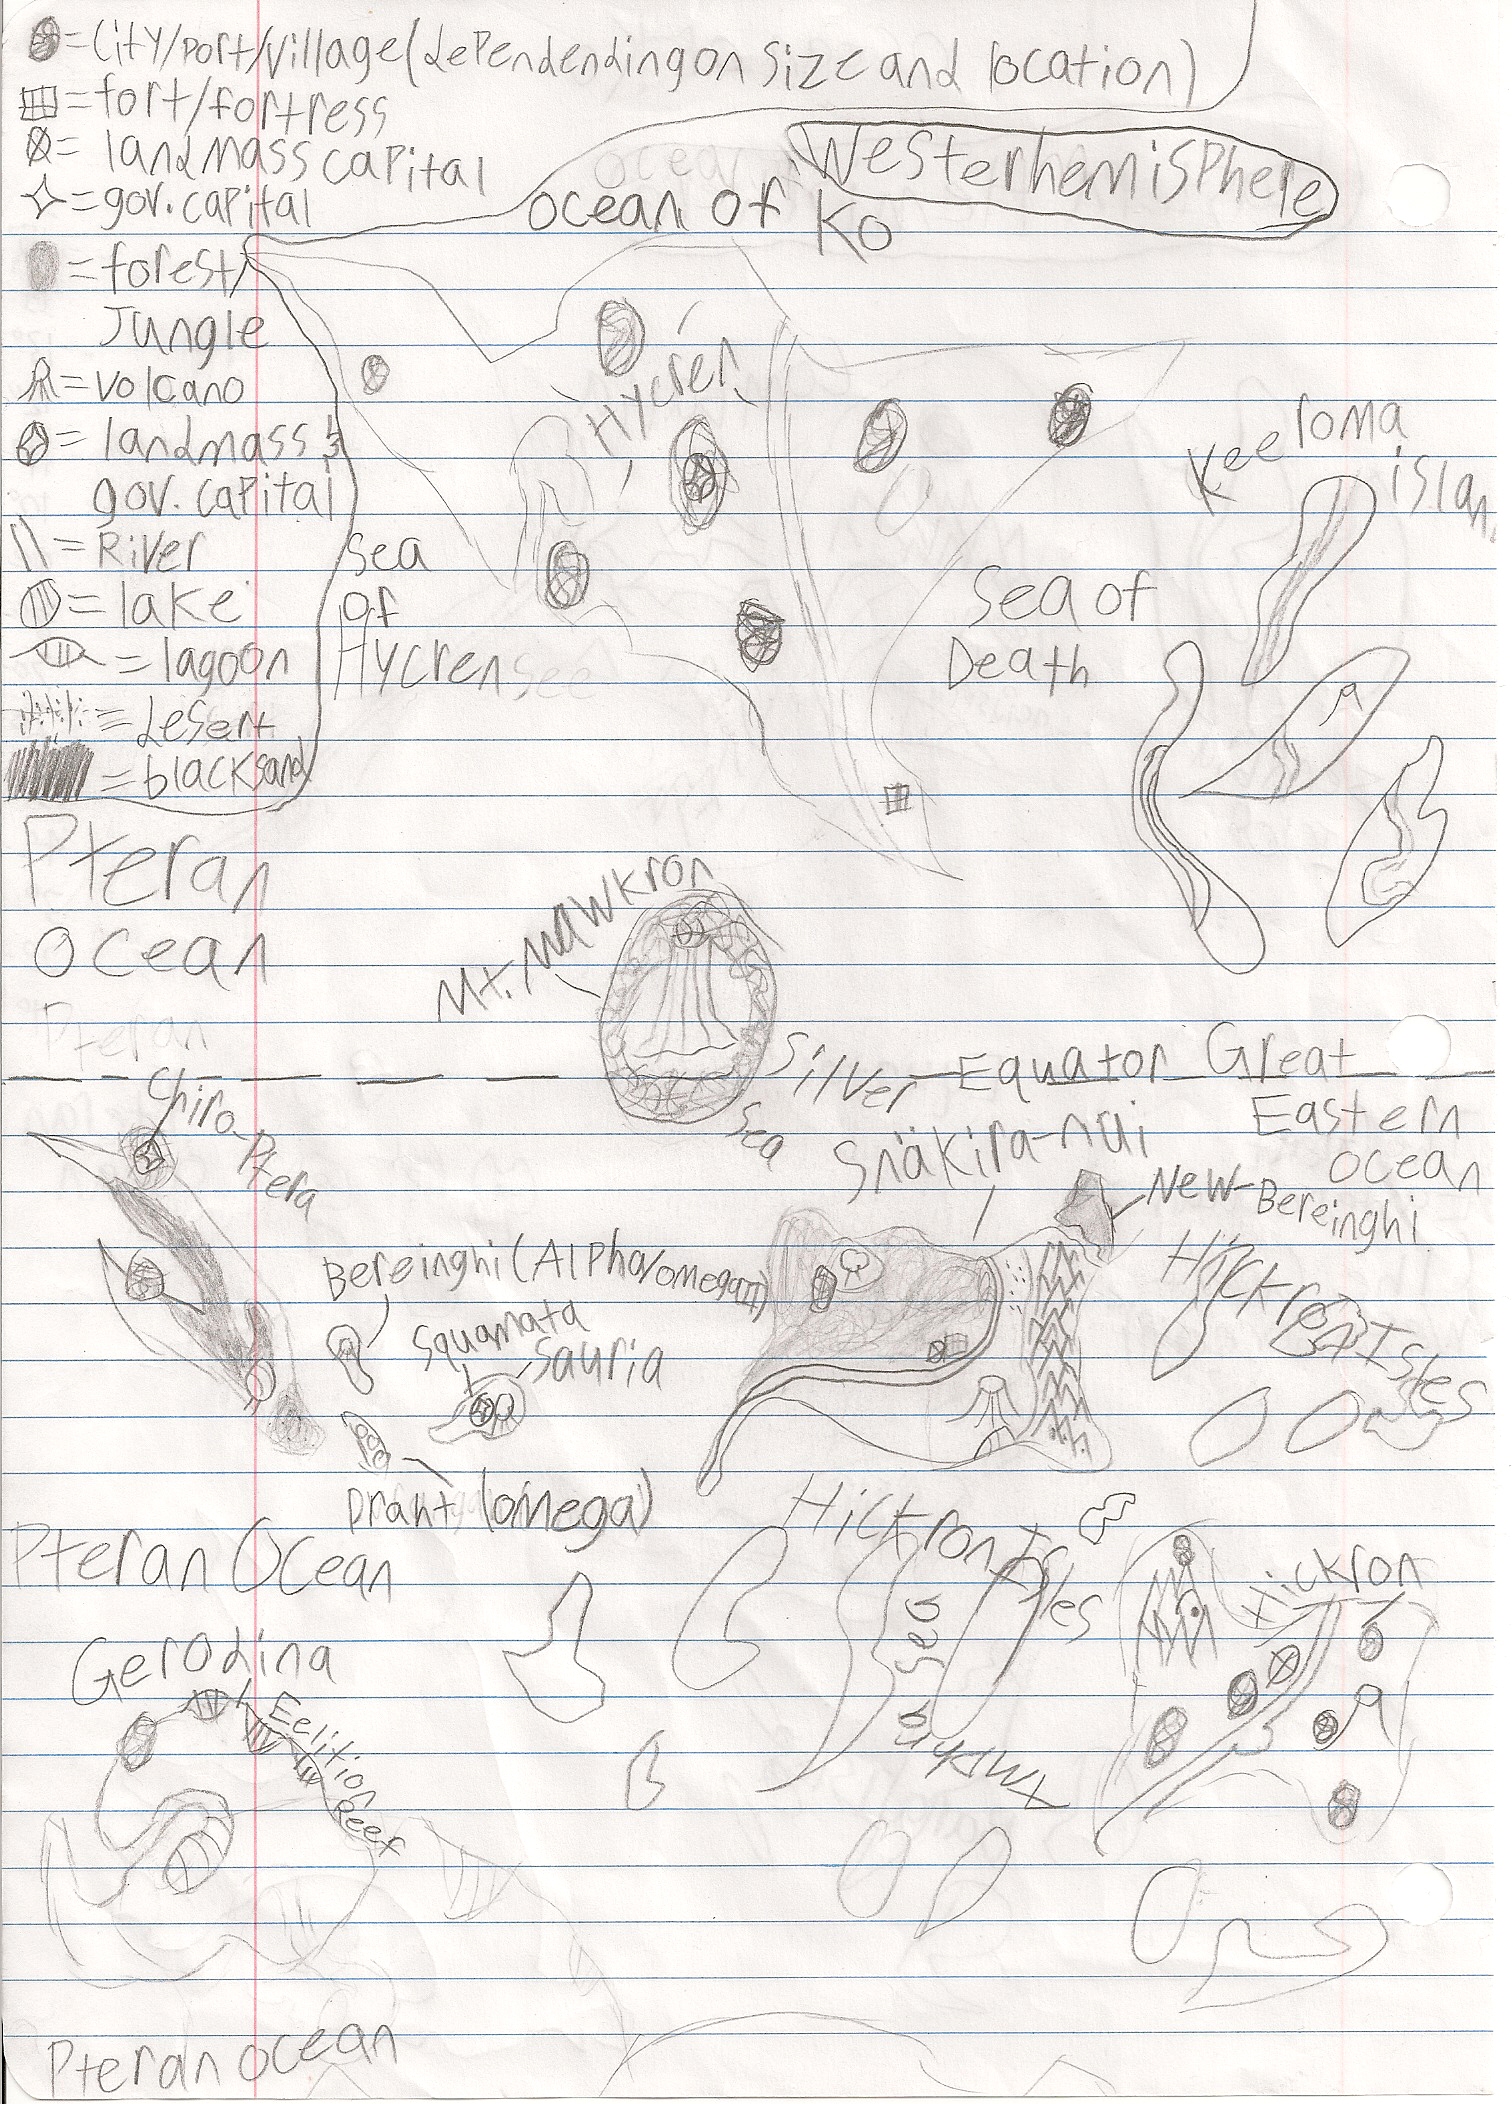 =City/port/village(dependending on size and location)
=fort/fortress
=landmass capital
=gov. capital
=forest/
Jungle
=volcano
=landmass &
gov. capital
=River
=lake
=lagoon
=desert
=black sand
Westerhemisphere
ocean
ocean of Ko
Hycren
Keeroma
islan
Sea
of
Hycren see
Sea of
Death
Pteran
ocean
Pteran
Mt. Mawkron
Silver
Sea
Equator
Great
Eastern
ocean
Chiro-Ptera
Snäkira-nui
New-Bereinghi
Bereinghi(Alpha/omega II)
Squamata
Sauria
Hickron Isles
Drant (omega)
Pteran Ocean
Hickron Isles
Xickron
Gerodina
Eelition
Reef
Sea
Pteran ocean